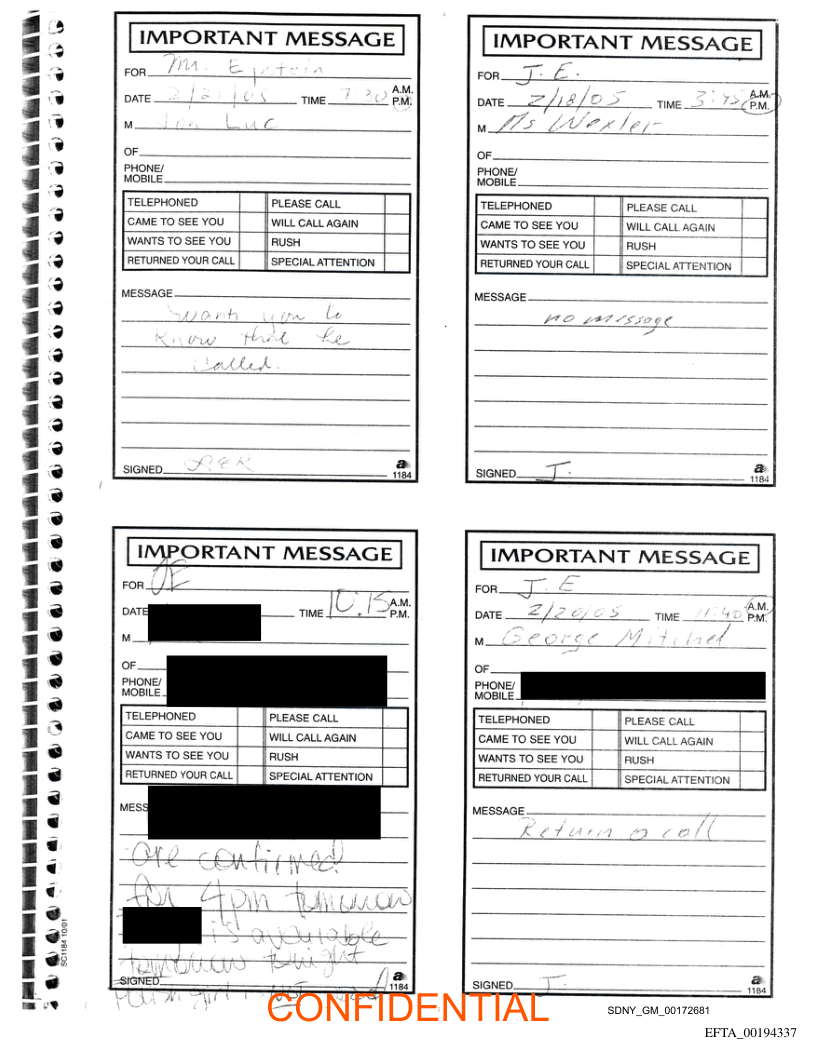 IMPORTANT MESSAGE
FOR Mr. Epstein
DATE 2/21/05 TIME 7:30 A.M.
P.M.
M Jan Luc
OF
PHONE/
MOBILE
TELEPHONED PLEASE CALL
CAME TO SEE YOU WILL CALL AGAIN
WANTS TO SEE YOU RUSH
RETURNED YOUR CALL SPECIAL ATTENTION
MESSAGE
wants you to
know that he
called.
SIGNED
a
1184
IMPORTANT MESSAGE
FOR J. E.
DATE 2/18/05 TIME 3:45 A.M.
P.M.
M Ms Wexler
OF
PHONE/
MOBILE
TELEPHONED PLEASE CALL
CAME TO SEE YOU WILL CALL AGAIN
WANTS TO SEE YOU RUSH
RETURNED YOUR CALL SPECIAL ATTENTION
MESSAGE
no message
SIGNED J.
a
1184
IMPORTANT MESSAGE
FOR JE
DATE TIME 10:15 A.M.
P.M.
M
OF
PHONE/
MOBILE
TELEPHONED PLEASE CALL
CAME TO SEE YOU WILL CALL AGAIN
WANTS TO SEE YOU RUSH
RETURNED YOUR CALL SPECIAL ATTENTION
MESS
are confirmed
for 4pm tomorrow
is available
tomorrow tonight
SIGNED
a
1184
IMPORTANT MESSAGE
FOR J. E
DATE 2/20/05 TIME 11:40 A.M.
P.M.
M George Mitchel
OF
PHONE/
MOBILE
TELEPHONED PLEASE CALL
CAME TO SEE YOU WILL CALL AGAIN
WANTS TO SEE YOU RUSH
RETURNED YOUR CALL SPECIAL ATTENTION
MESSAGE
Return a call
SIGNED J.
a
1184
SC1184 10/01
CONFIDENTIAL
SDNY_GM_00172681
EFTA_00194337